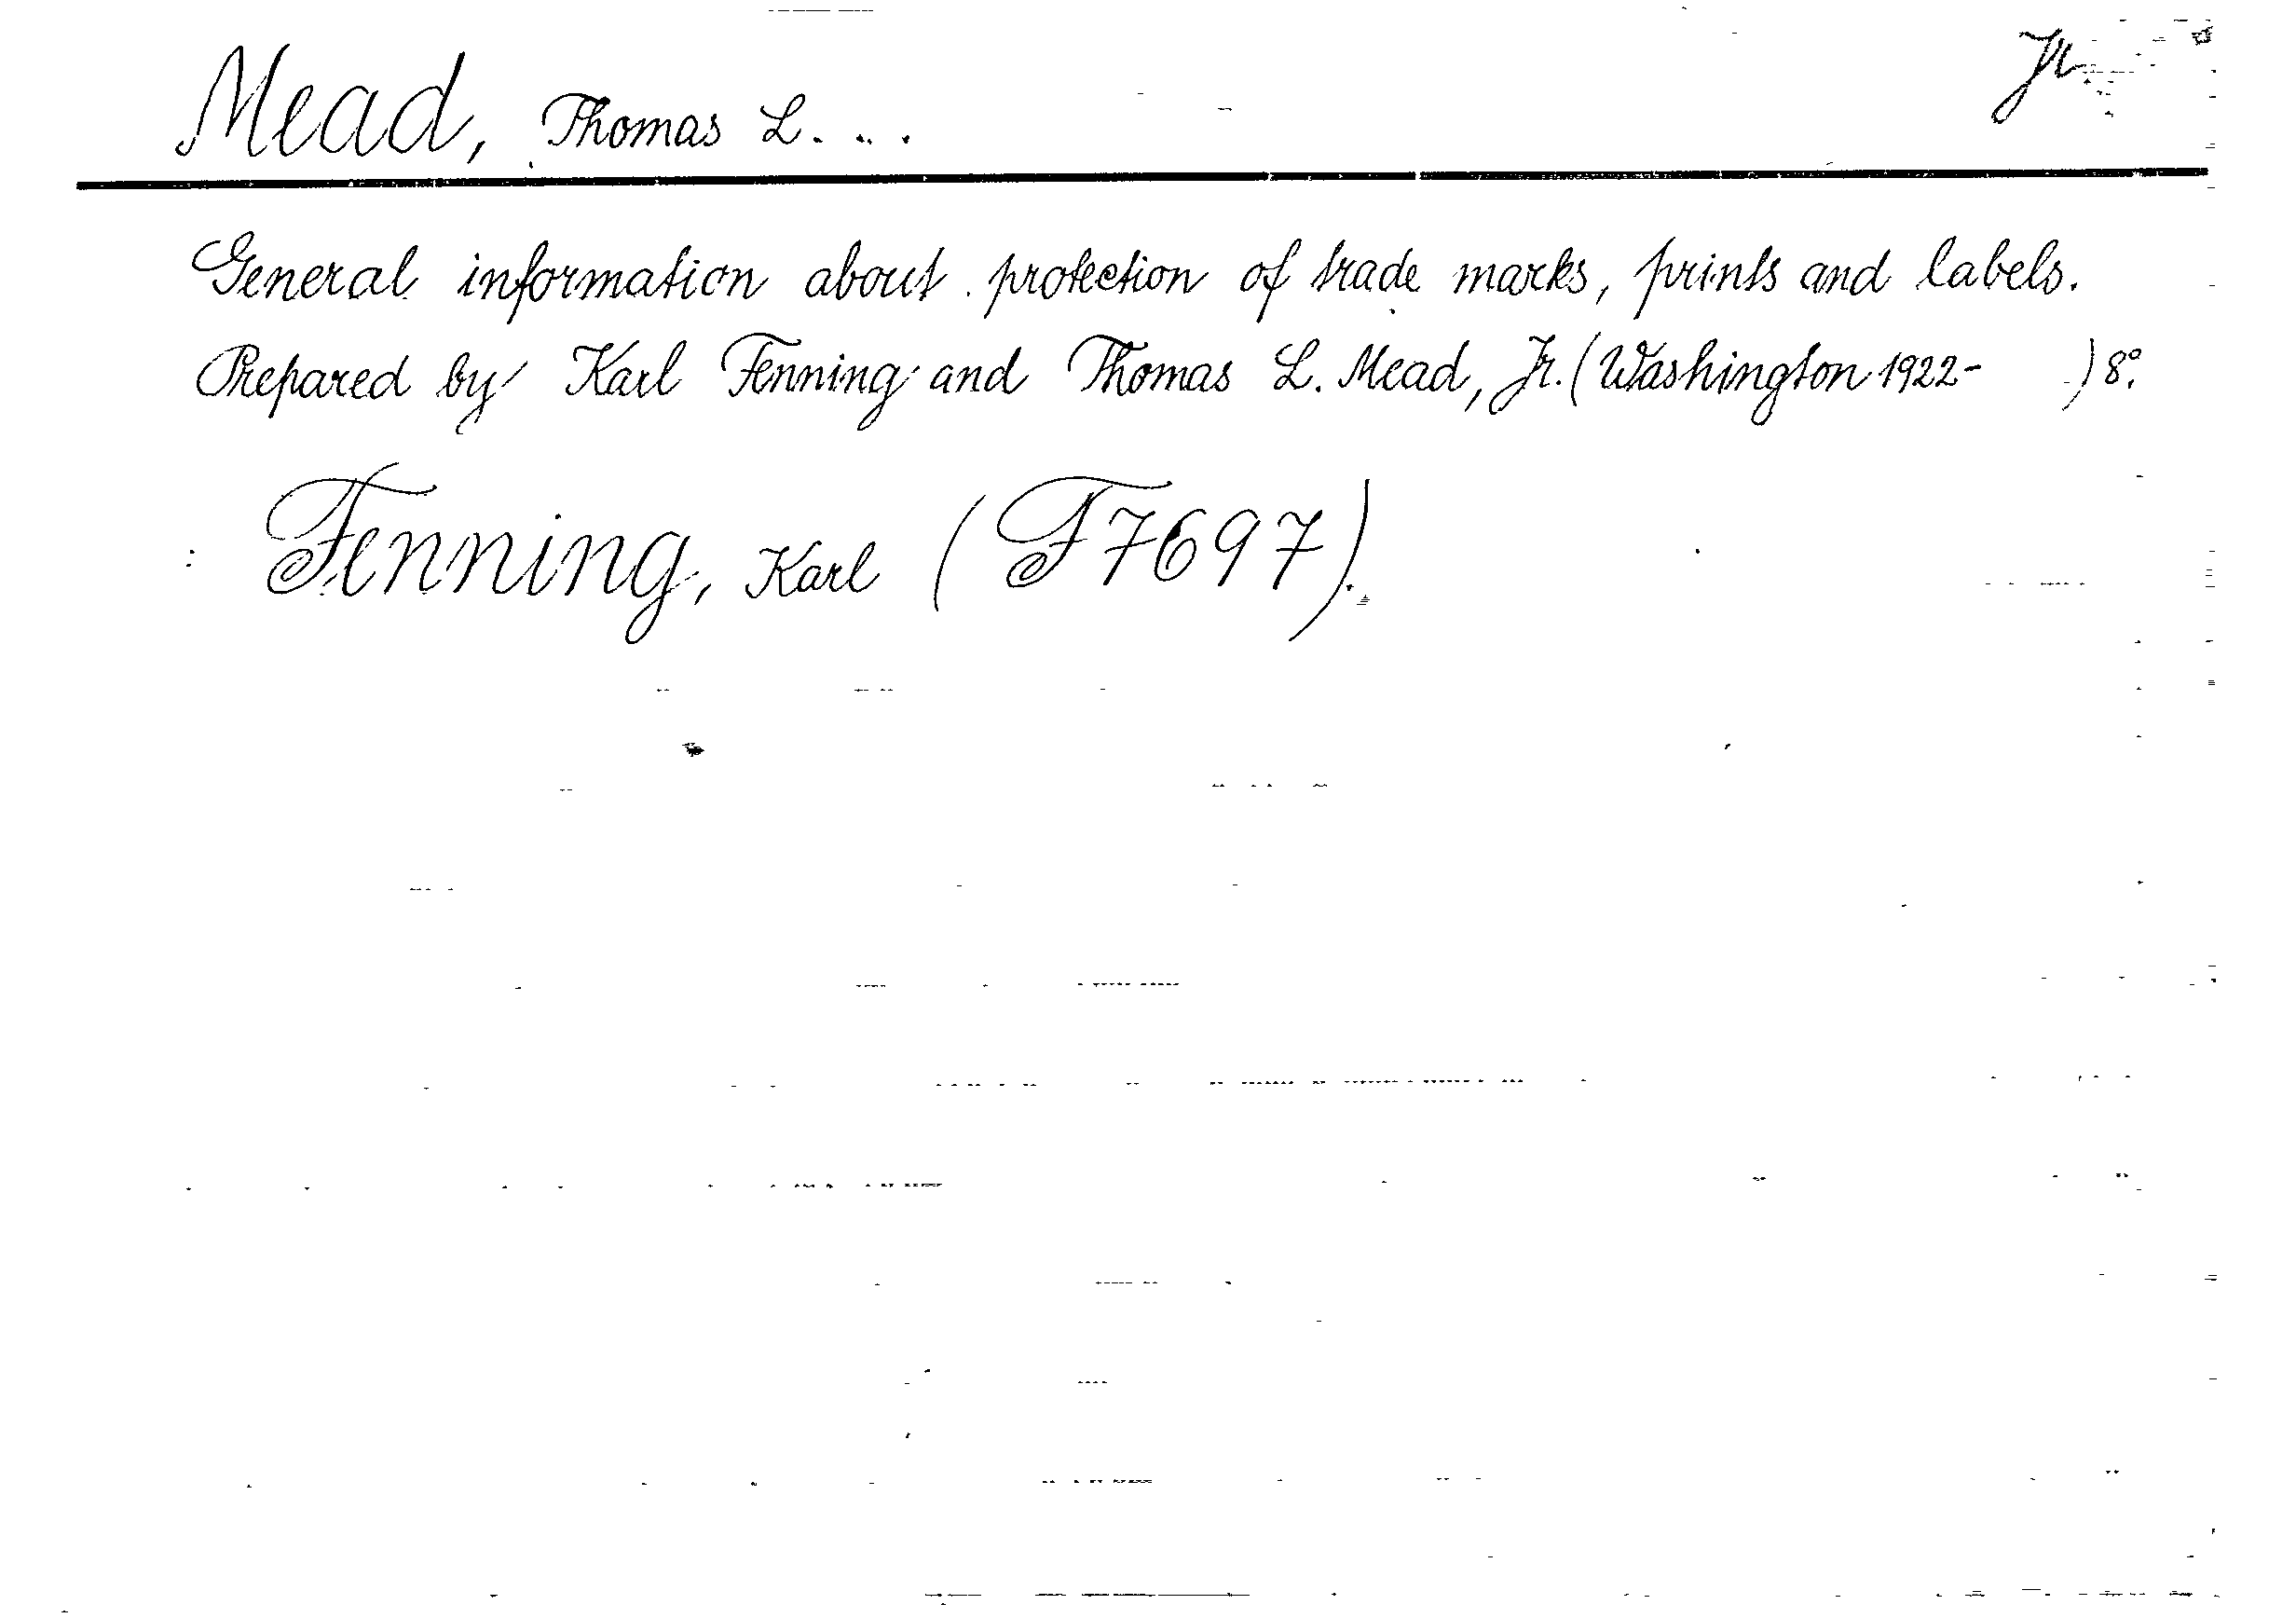 Mead, Thomas L. . . . Jr
General information about protection of trade marks, prints and labels.
Prepared by Karl Fenning and Thomas L. Mead, Jr. (Washington 1922- ) 8°.
: Fenning, Karl (F7697).